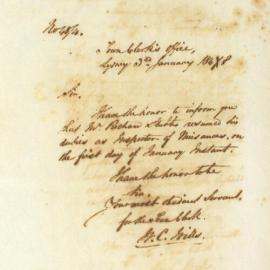 No 48/4.
Town Clerk's Office,
Sydney 3rd January 1848
Sir,
I have the honor to inform you
that Mr Stubbs resumed his
duties as Inspector of Nuisances, on
the first day of January Instant.
I have the honor to be
Sir,
Your most obedient Servant,
for the Town Clerk.
W. C. Wills.